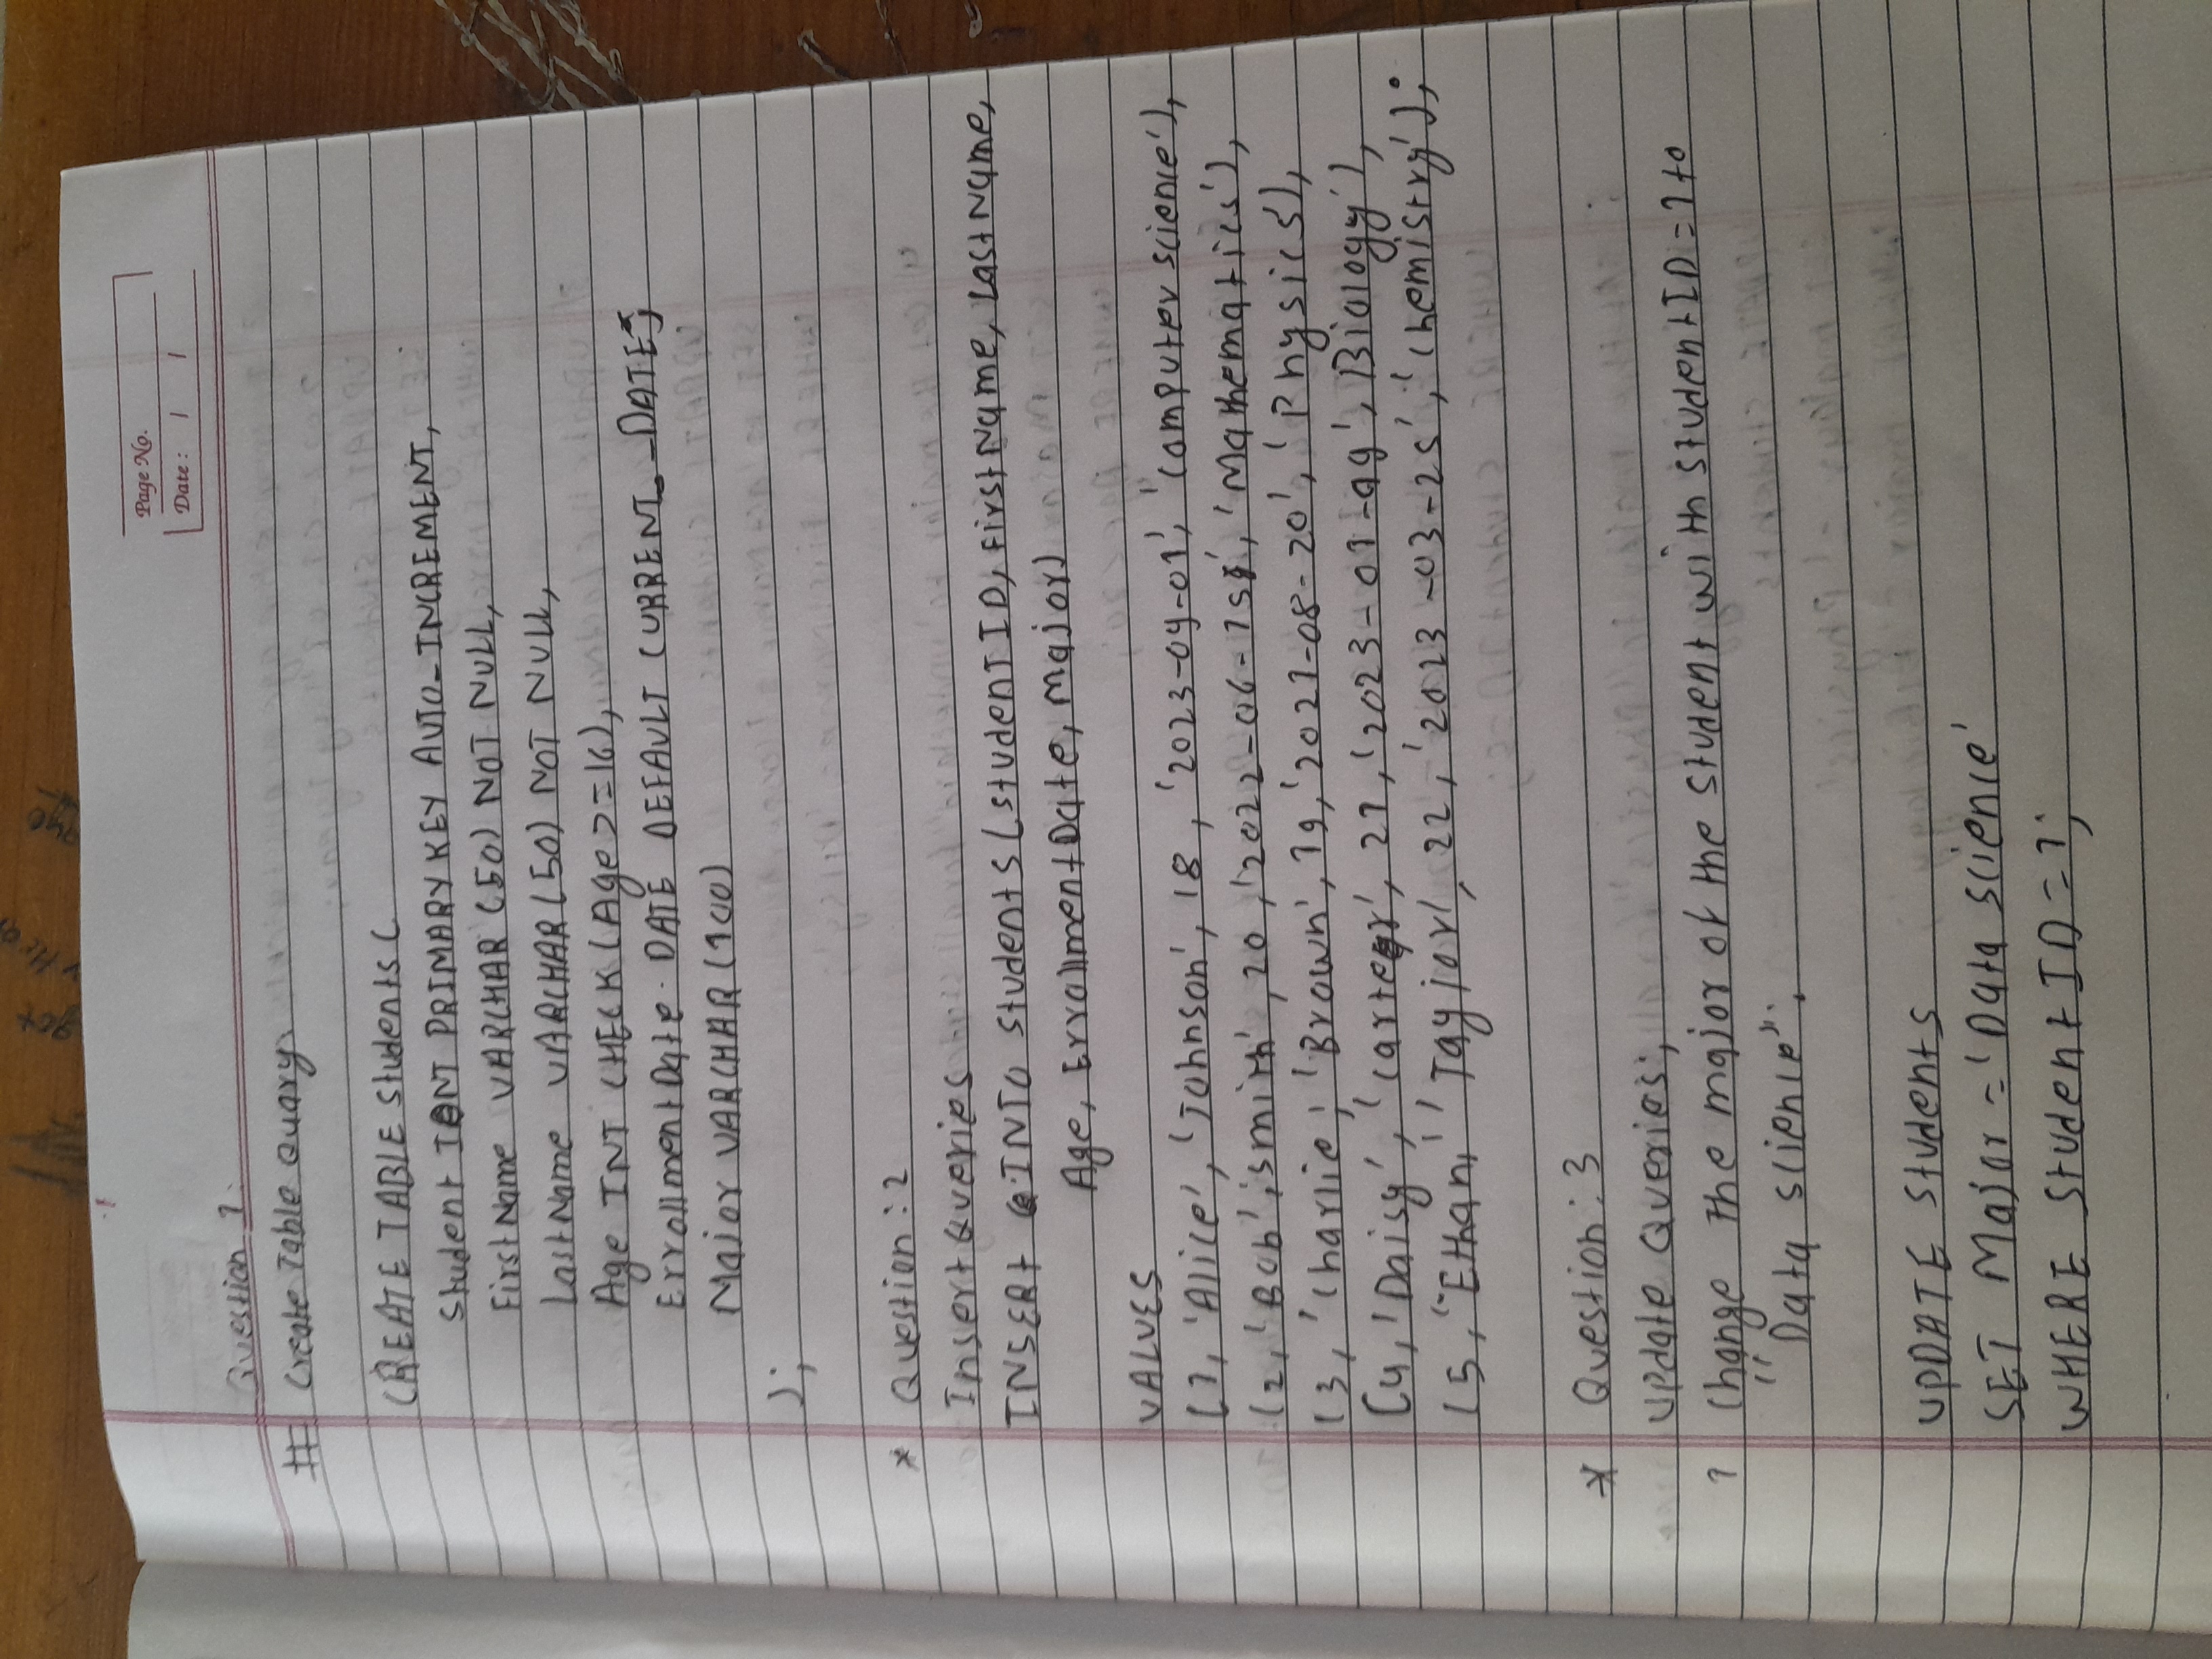 Page No.
Date : / /
Question 1:
# Create Table Quary.
CREATE TABLE Students (
Student INT PRIMARY KEY AUTO_INCREMENT,
FirstName VARCHAR (50) NOT NULL,
LastName VARCHAR (50) NOT NULL,
Age INT CHECK (Age >= 16),
ErrollmentDate DATE DEFAULT CURRENT_DATE,
Major VARCHAR (100)
);
* Question : 2
Insert Queries
INSERt INTO Students (StudenTID, FirstName, LastName,
Age, ErrollmentDate, Major)
VALUES
(1, 'Alice', 'Johnson', 18, '2023-09-01', 'Computer science'),
(2, 'Bob', 'smith', 20, '2022-06-15', 'Mathematics'),
(3, 'Charlie', 'Brown', 19, '2021-08-20', 'Physics'),
(4, 'Daisy', 'Carter', 21, '2023-01-', Biology'),
(5, 'Ethan,' 'Taylor', 22, '2023-03-25', 'Chemistry');
* Question : 3
Update Queries;
1 Change the major of the Student with StudentID = 1 to
"Data science".
UPDATE Students
SET Major = 'Data science'
WHERE StudentID = 1;